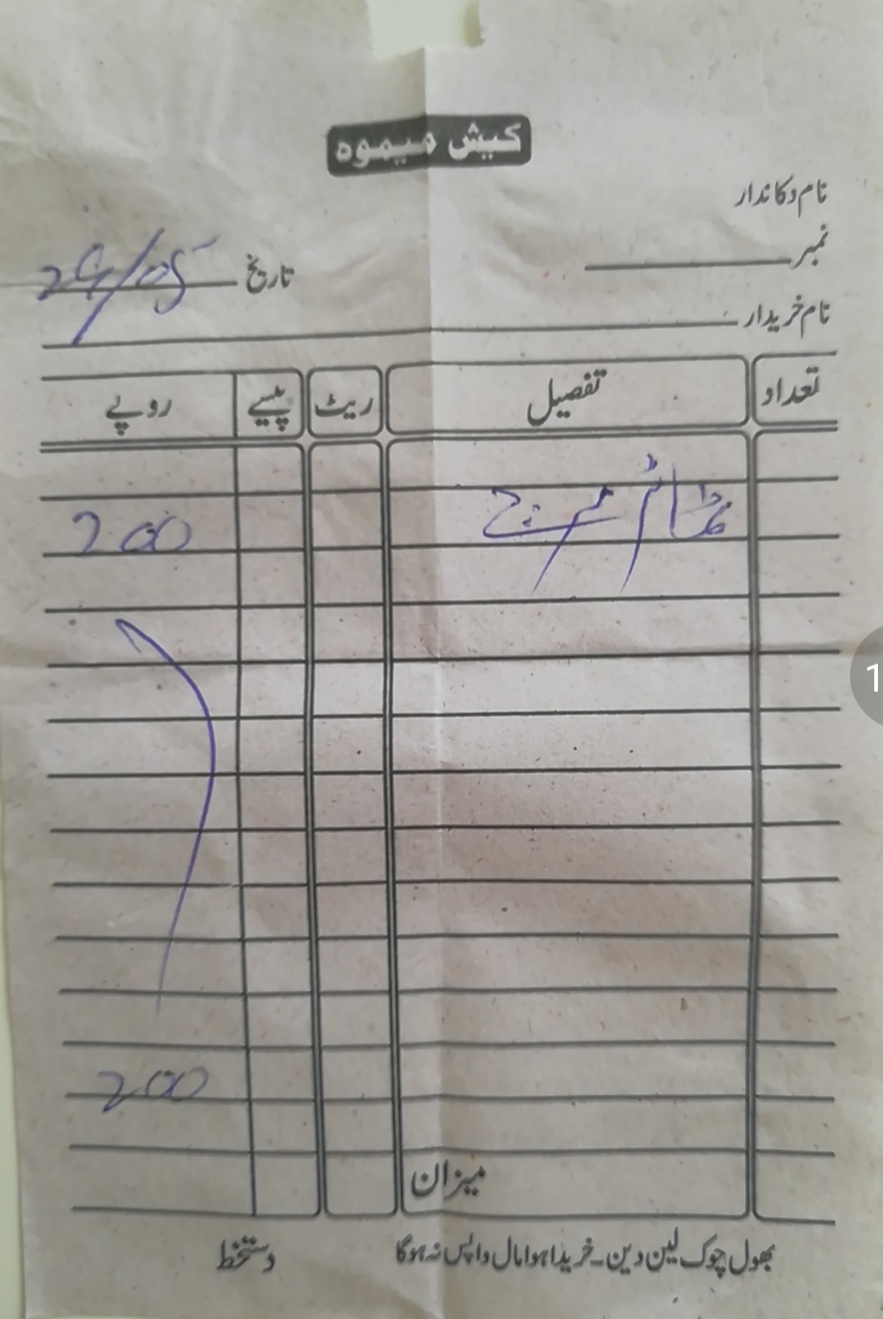 کیش میموہ
نام دکاندار
نمبر
تاریخ 29/05
نام خریدار
تعداد تفصیل ریٹ پیسے روپے
200
200
میزان
بھول چوک لین دین۔خریدا ہوا مال واپس نہ ہوگا
دستخط
1